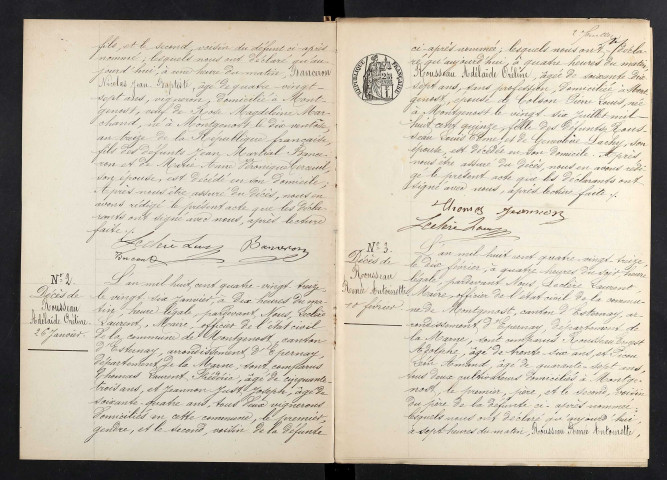 fils, et le second, voisin du défunt ci-après
nommé; lesquels nous ont déclaré qu'au-
jourd'hui, à une heure du matin, Banneron
Nicolas Jean Baptiste, âgé de quatre-vingt-
sept ans, vigneron, domicilié à Mont-
genost, veuf de Rose Magdeleine Mar-
chant, né à Montgenost, le dix ventôse,
an treize de la République française,
fils des défunts Jean Martial Banne-
ron et de Marie Anne
son épouse, est décédé en son domicile;
Après nous être assuré du décès, nous en
avons rédigé le présent acte que les décla-
rants ont signé avec nous, après lecture
faite
Leclère Banneron
N° 2
Décès de
Rousseau
Adélaïde Oréline
26 Janvier
L'an mil huit cent quatre-vingt treize
le vingt six janvier, à dix heures du ma-
tin, heure légale, pardevant Nous, Leclère
Laurent, Maire, officier de l'état civil
de la commune de Montgenost, canton
d'Esternay, arrondissement d'Epernay,
département de la Marne, sont comparus
Thomas Laurent Frédéric, âgé de cinquante-
trois ans, et Jeannon Just Joseph, âgé de
soixante-quatre ans, tous deux vignerons
domiciliés en cette commune, le premier
gendre, et le second, voisin de la défunte
RÉPUBLIQUE FRANÇAISE
ci-après nommée; lesquels nous ont décla-
ré qu'aujourd'hui, à quatre heures du matin,
Rousseau Adélaïde Oréline, âgée de soixante dix
sept ans, sans profession, domiciliée à Mont-
genost, épouse de Colson Louis, née
à Montgenost le vingt six juillet mil
huit cent quinze, fille des défunts Rous-
seau Louis et de Geneviève son
épouse, est décédée en son domicile. Après
nous être assuré du décès, nous en avons rédi-
gé le présent acte que les déclarants ont
signé avec nous, après lecture faite
Thomas Jeannon
Leclère
N° 3.
Décès de
Rousseau
Antoinette
février
L'an mil huit cent quatre vingt treize
le dix février, à quatre heures du soir, heure
légale, pardevant Nous, Leclère Laurent,
Maire, officier de l'état civil de la commu-
ne de Montgenost, canton d'Esternay, ar-
rondissement d'Epernay, département de
la Marne, sont comparus Rousseau
Adolphe, âgé de trente-six ans, et
Armand, âgé de quarante-sept ans,
tous deux cultivateurs domiciliés à Montge-
nost, le premier, père, et le second, voisin
du père de la défunte ci-après nommée;
lesquels nous ont déclaré qu'aujourd'hui,
à sept heures du matin, Rousseau Antoinette